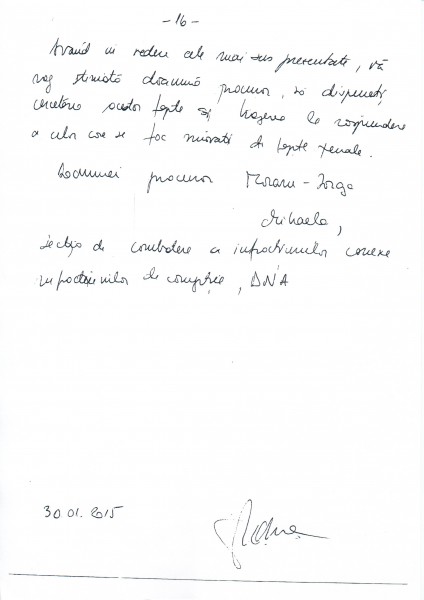 - 16 -
Având în vedere cele mai sus prezentate, vă
rog stimată doamnă procuror, să dispuneți
cercetarea acestor fapte și tragerea la răspundere
a celor care se fac vinovați de fapte penale.
Doamnei procuror Moraru - Iorga
Mihaela,
Secția de combatere a infracțiunilor conexe
infracțiunilor de corupție, DNA
30.01.2015